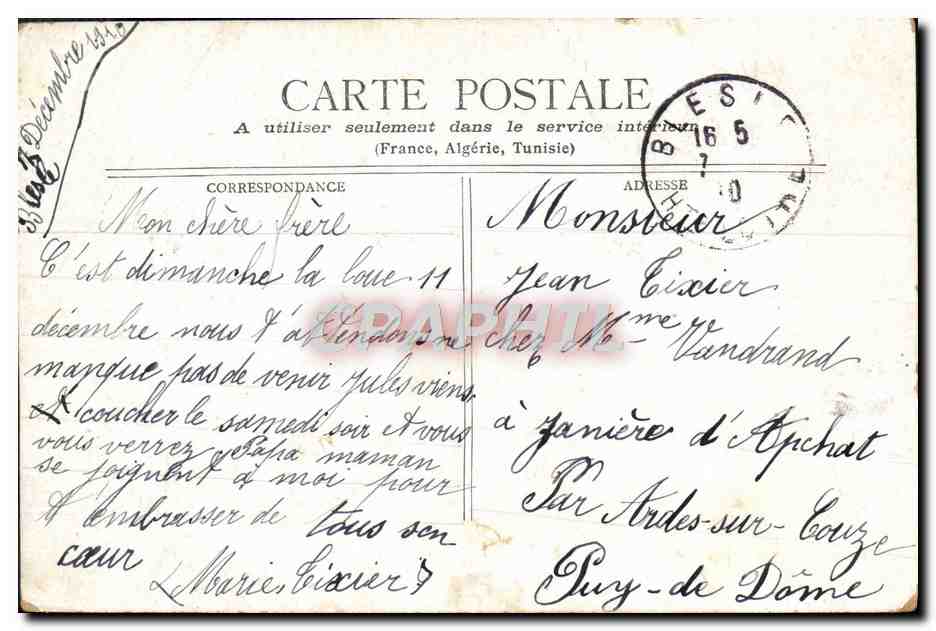 Blesle 7 Décembre 1910
CARTE POSTALE
A utiliser seulement dans le service intérieur
(France, Algérie, Tunisie)
CORRESPONDANCE
Mon chère frère
C'est dimanche la loue 11
décembre nous t'attendons ne
manque pas de venir Jules viens
coucher le samedi soir et vous
vous verrez Papa maman
se joignent à moi pour
t'embrasser de tous son
cœur
Marie Tixier
ADRESSE
Monsieur
Jean Tixier
chez Mme Vandrand
à Janière d'Apchat
Par Ardes-sur-Couze
Puy-de Dôme
BLESLE
16 5
7
10
HTE
CPAPHIL